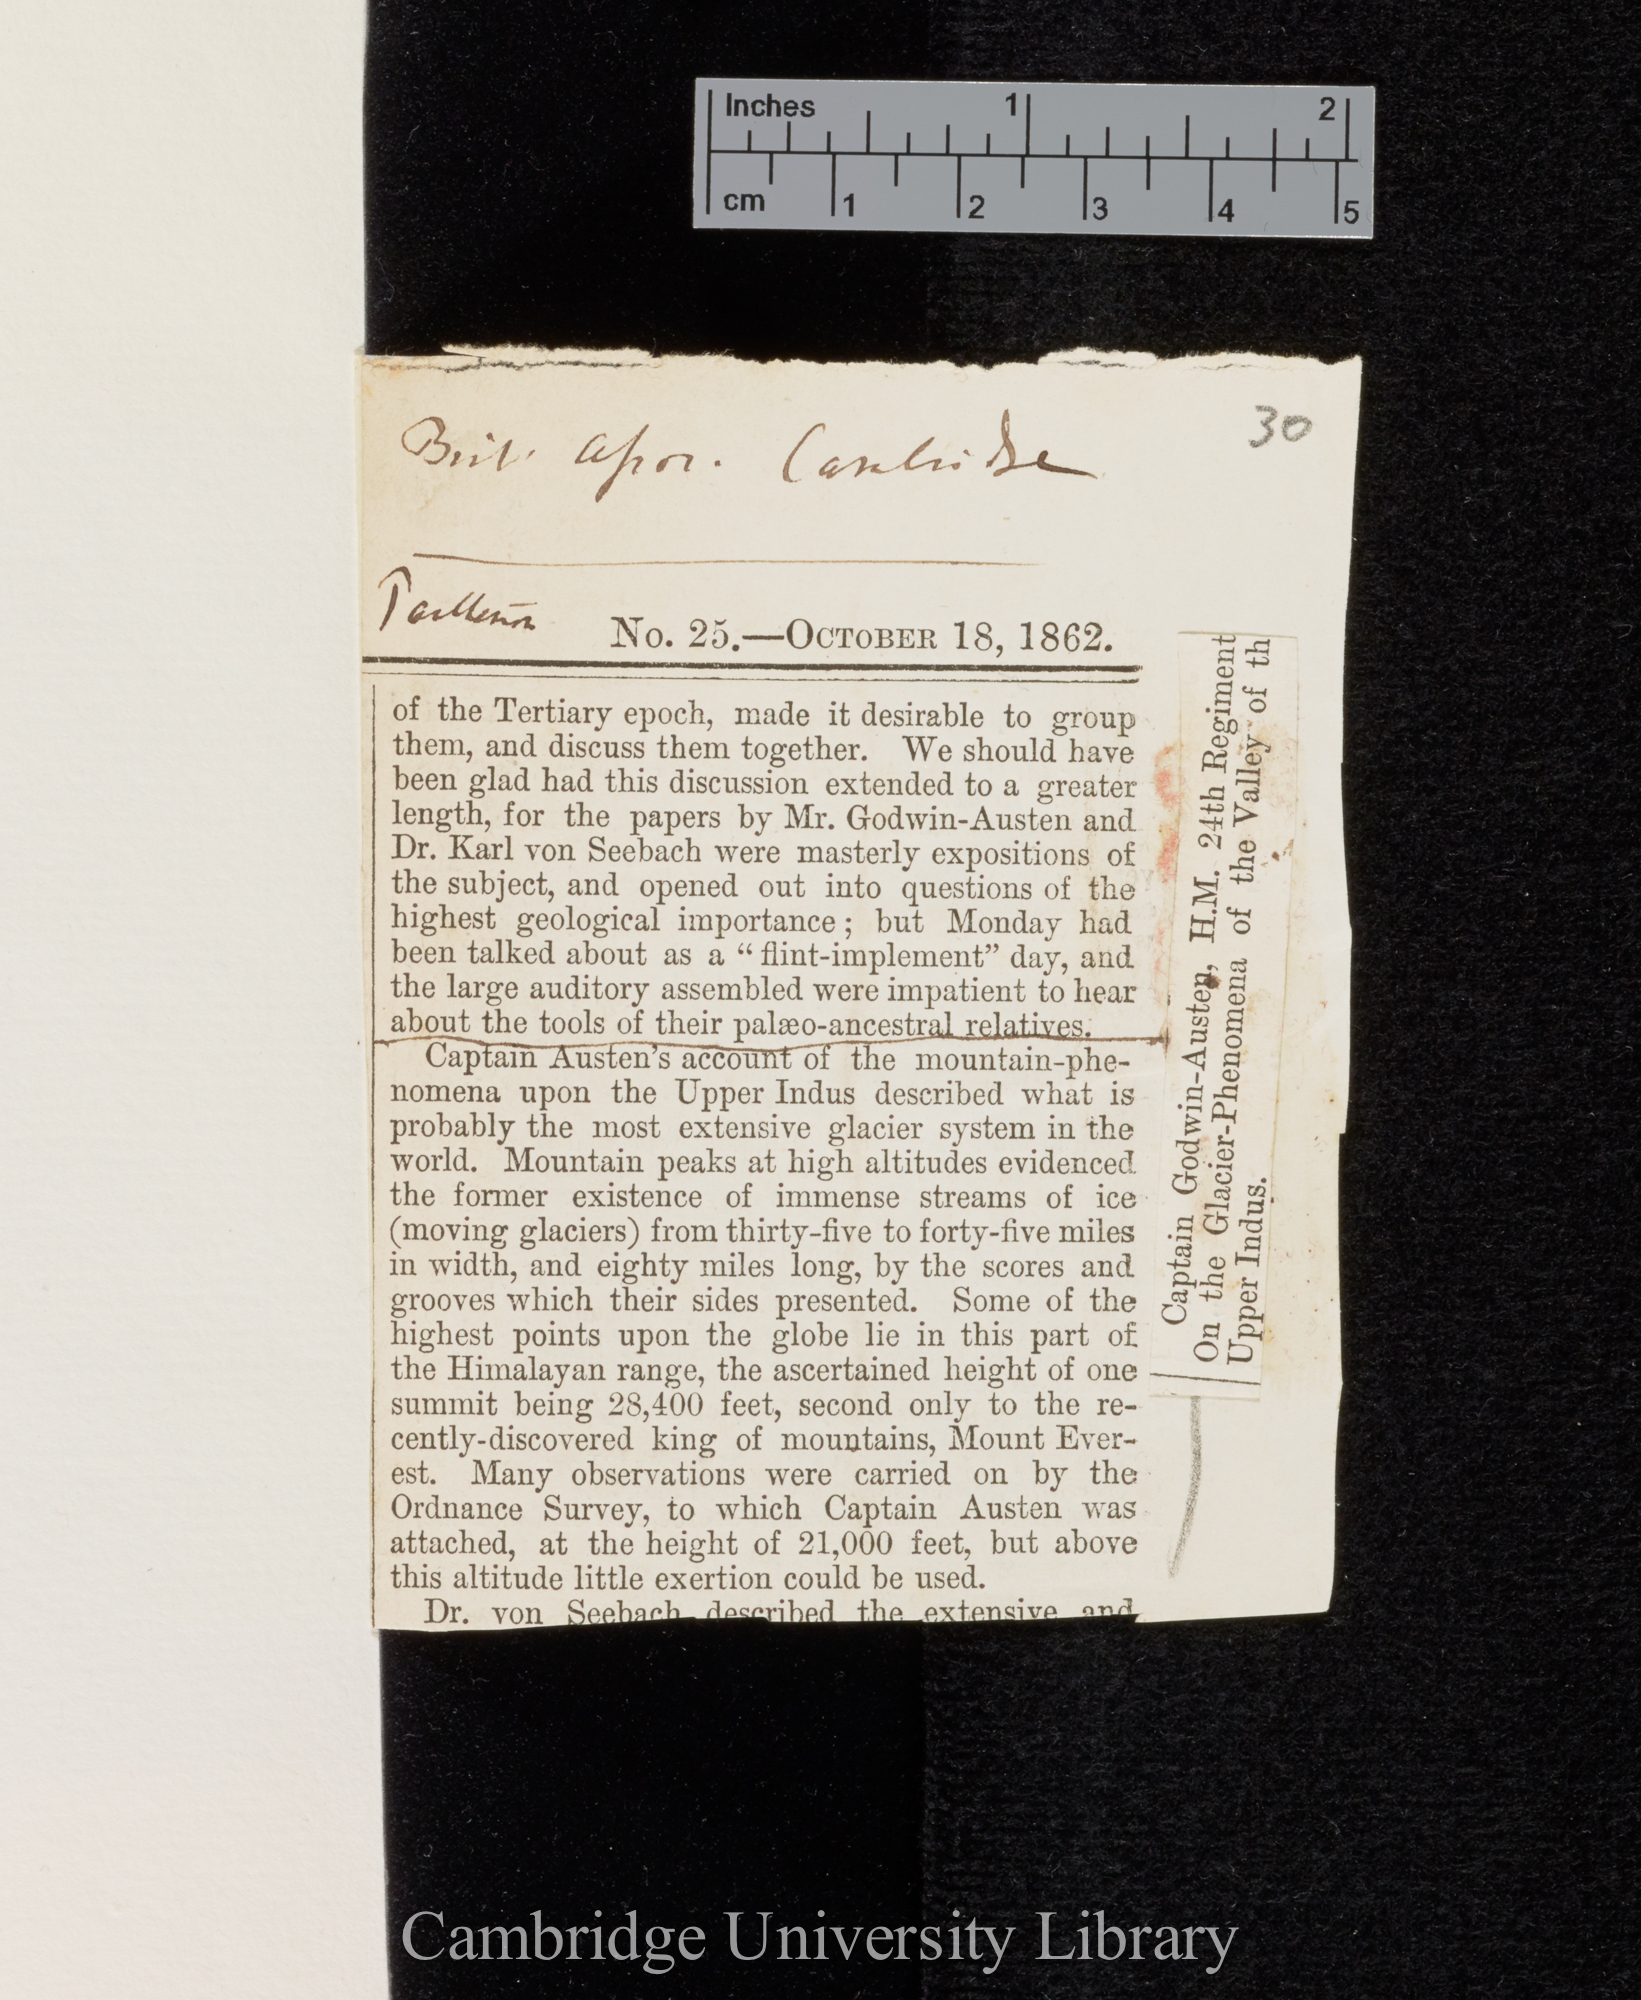 Inches 1 2
cm 1 2 3 4 5
30
Brit. Assoc. Cambridge
Parthenon
No. 25.—October 18, 1862.
of the Tertiary epoch, made it desirable to group
them, and discuss them together. We should have
been glad had this discussion extended to a greater
length, for the papers by Mr. Godwin-Austen and
Dr. Karl von Seebach were masterly expositions of
the subject, and opened out into questions of the
highest geological importance; but Monday had
been talked about as a “flint-implement” day, and
the large auditory assembled were impatient to hear
about the tools of their palæo-ancestral relatives.
Captain Austen's account of the mountain-phe-
nomena upon the Upper Indus described what is
probably the most extensive glacier system in the
world. Mountain peaks at high altitudes evidenced
the former existence of immense streams of ice
(moving glaciers) from thirty-five to forty-five miles
in width, and eighty miles long, by the scores and
grooves which their sides presented. Some of the
highest points upon the globe lie in this part of
the Himalayan range, the ascertained height of one
summit being 28,400 feet, second only to the re-
cently-discovered king of mountains, Mount Ever-
est. Many observations were carried on by the
Ordnance Survey, to which Captain Austen was
attached, at the height of 21,000 feet, but above
this altitude little exertion could be used.
Dr. von Seebach described the extensive and
Captain Godwin-Austen, H.M. 24th Regiment
On the Glacier-Phenomena of the Valley of th
Upper Indus.
Cambridge University Library